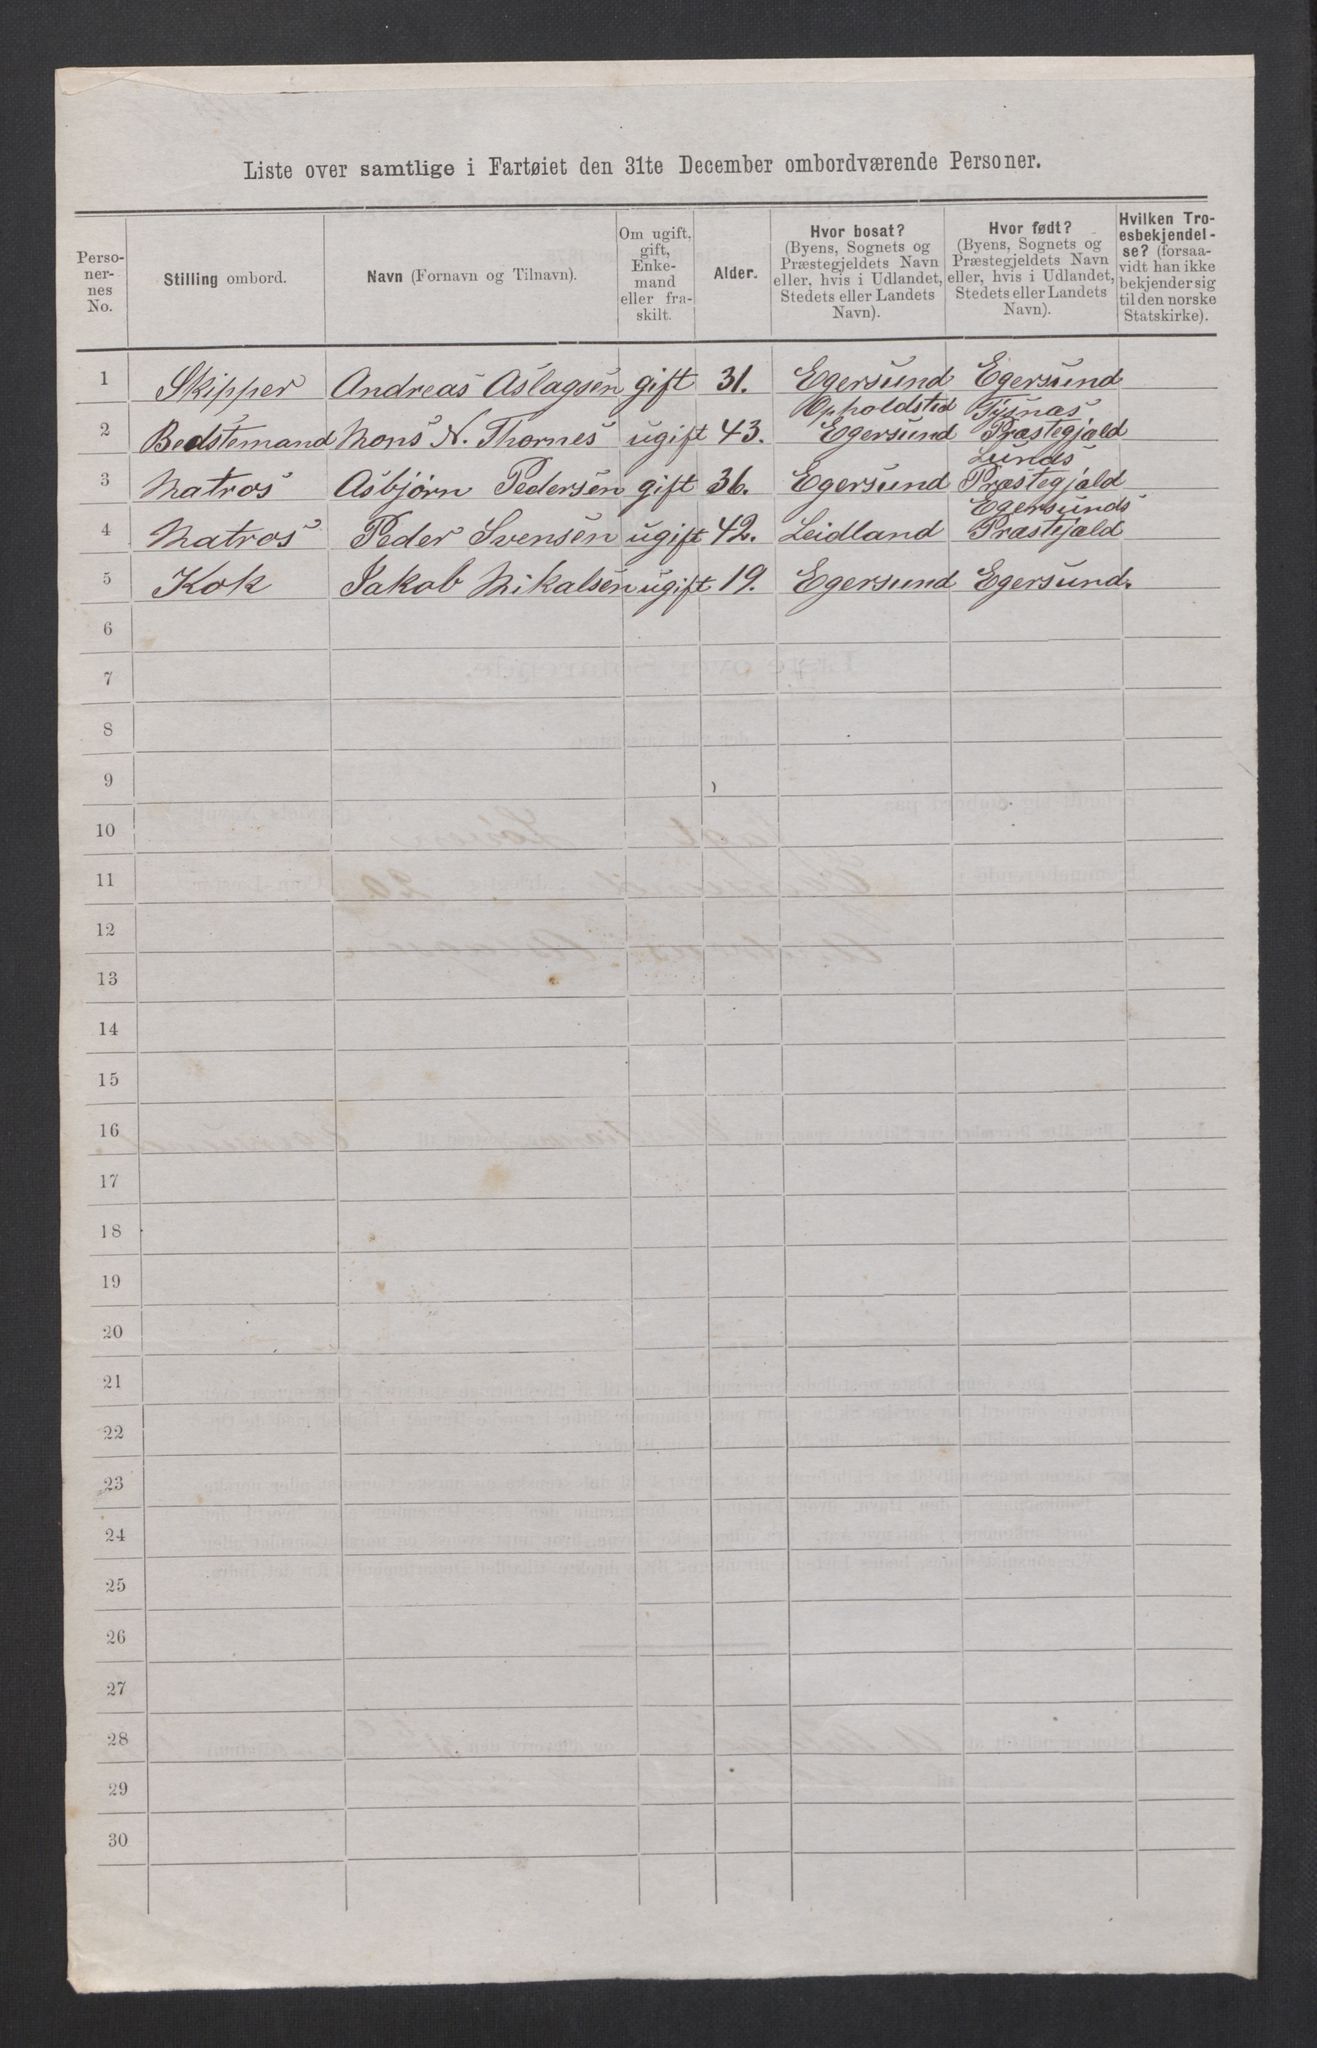 Liste over samtlige i Fartøiet den 31te December ombordværende Personer.
Perso-
ner-
nes
No.
Stilling ombord.
Navn (Fornavn og Tilnavn).
Om ugift,
gift,
Enke-
mand
eller fra-
skilt.
Alder.
Hvor bosat?
(Byens, Sognets og
Præstegjeldets Navn
eller, hvis i Udlandet,
Stedets eller Landets
Navn).
Hvor født?
(Byens, Sognets og
Præstegjeldets Navn
eller, hvis i Udlandet,
Stedets eller Landets
Navn).
Hvilken Tro-
esbekjendel-
se? (forsaa-
vidt han ikke
bekjender sig
til den norske
Statskirke).
1 Skipper Andreas Aslagsen gift 31. Egersund Egersund
Opholdsted Tysnas
2 Bedstemand Mons N. Thornes ugift 43. Egersund Præstegjald
Lunds
3 Matros Asbjørn Pedersen gift 36. Egersund Præstegjald
Egersunds
4 Matros Peder Svensen ugift 42. Leidland Præstejald
5 Kok Jakob Mikalsen ugift 19. Egersund Egersund.
6
7
8
9
10
11
12
13
14
15
16
17
18
19
20
21
22
23
24
25
26
27
28
29
30